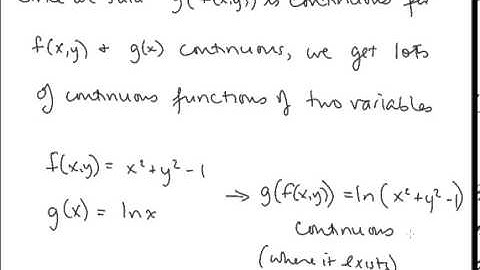 Since we said g(f(x,y)) is continuous for
f(x,y) + g(x) continuous, we get lots
of continuous functions of two variables
f(x,y) = x² + y² - 1
g(x) = ln x
→ g(f(x,y)) = ln(x² + y² - 1)
continuous
(where it exists)